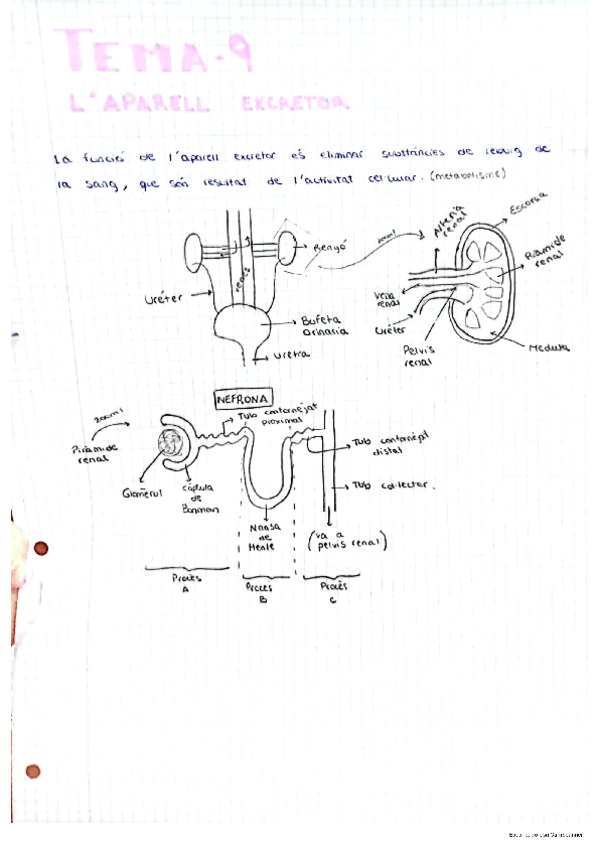 TEMA-9
L'APARELL EXCRETOR
La funció de l'aparell excretor és eliminar substàncies de rebuig de
la sang, que són resultat de l'activitat cel·lular. (metabolisme)
Renyó
Uréter
Bufeta
Orinaria
uretra
zoom!
Artèria
renal
Escorsa
Piràmide
renal
Vena
renal
Uréter
Pelvis
renal
Medul·la
NEFRONA
zoom!
Piràmide
renal
Tub contornejat
proximal
Glomèrul
Càpsula
de
Bowman
Tub contornejat
distal
Tub col·lector.
Nansa
de
Henle
(va a
pelvis renal)
Procés
A
Procés
B
Procés
C